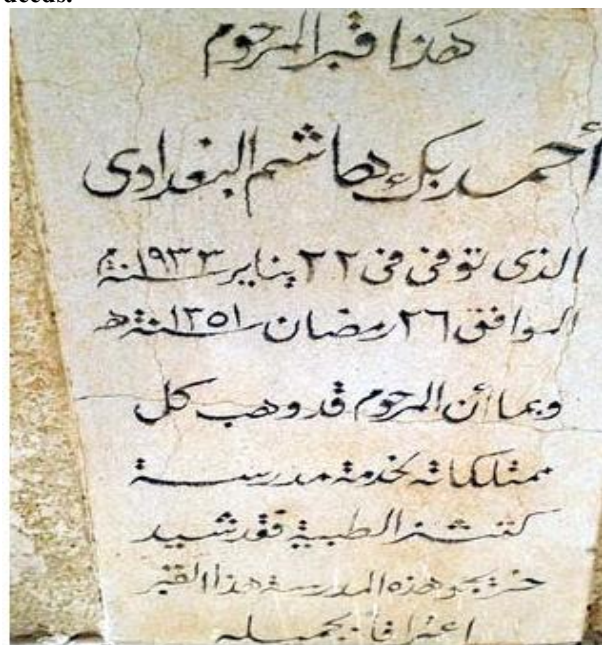 deeds.
هذا قبر المرحوم
أحمد بك هاشم البغدادى
الذى توفى فى ٢٢ يناير سنة ١٩٣٣م
الموافق ٢٦ رمضان سنة ١٣٥١ه
وبما أن المرحوم قد وهب كل
ممتلكاته لخدمة مدرسة
كتشنر الطبية فقد شيد
خريجو هذه المدرسة هذا القبر
اعترافا بجميله